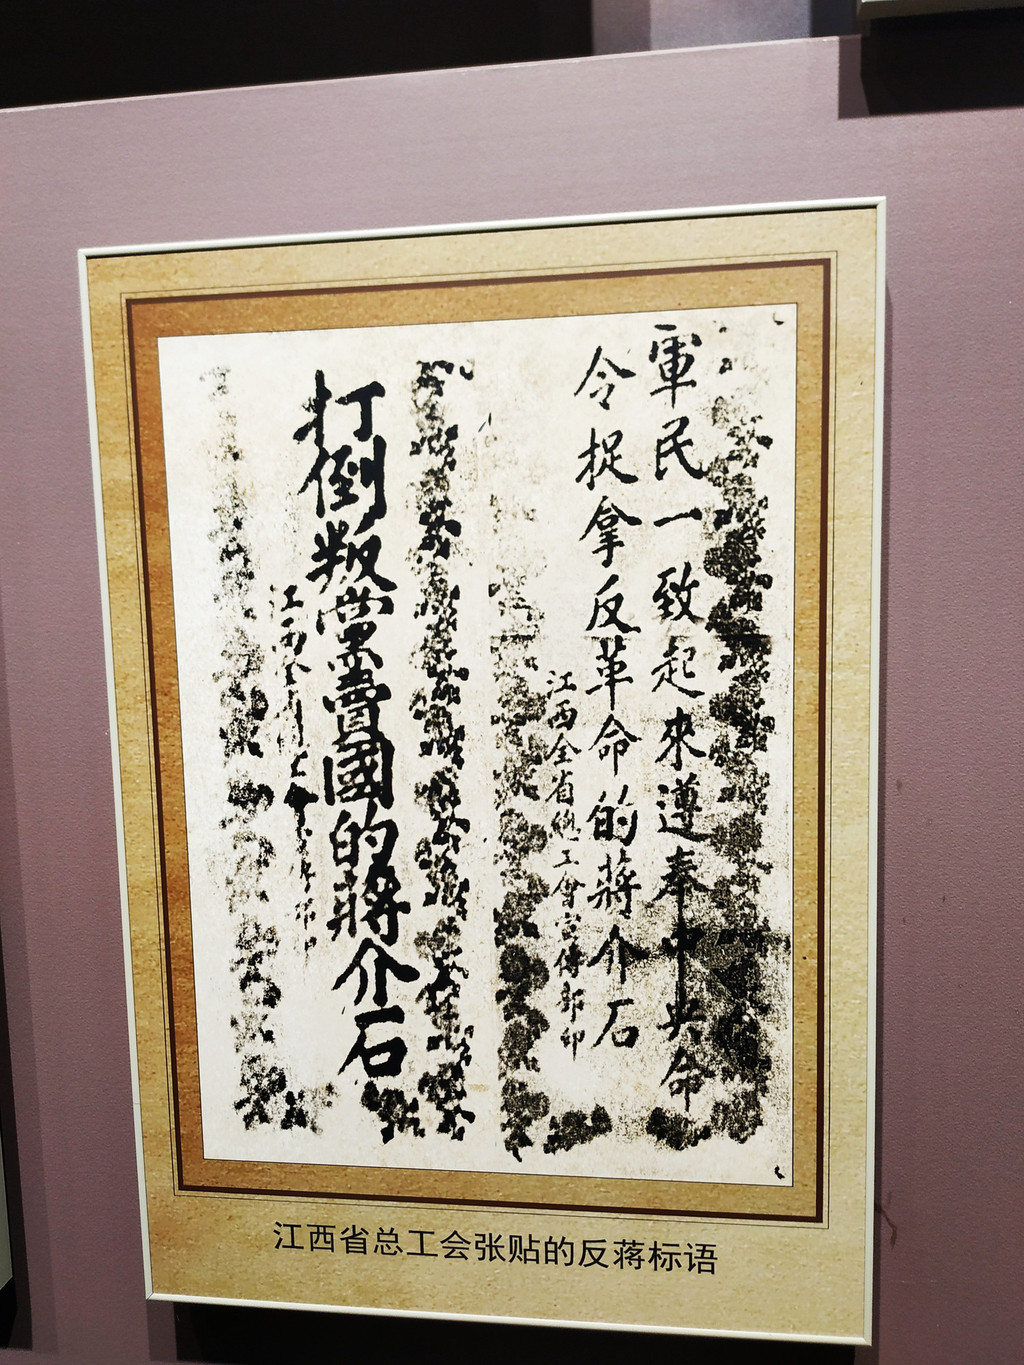 軍民一致起來遵奉中央命
令捉拿反革命的蔣介石
江西全省總工會宣傳部印
打倒叛黨賣國的蔣介石
江西全省總工會宣傳部印
江西省总工会张贴的反蒋标语